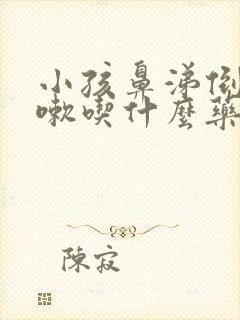 小孩鼻涕倒
嗽喫什麼藥
陳寂